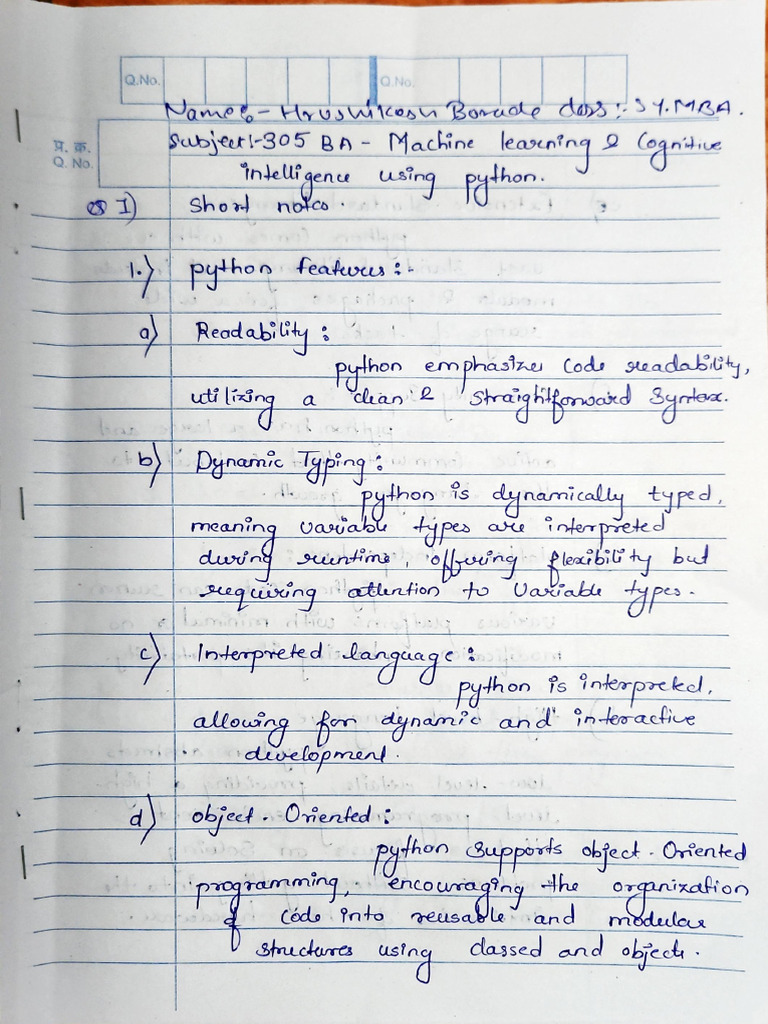 Q.No. Q.No.
Name:- Hrushikesh Borude class:- SY.MBA.
प्र. क्र.
Q. No.
Subject:-305 BA - Machine learning & Cognitive
intelligence using python.
Q I) Short notes.
1.) python features:-
a) Readability:
python emphasizes code readability,
utilizing a clean & straightforward syntax.
b) Dynamic Typing:
python is dynamically typed,
meaning variable types are interpreted
during runtime, offering flexibility but
requiring attention to variable types.
c) Interpreted language:
python is interpreted,
allowing for dynamic and interactive
development.
d) object-Oriented:
python supports object-Oriented
programming, encouraging the organization
of code into reusable and modular
structures using classed and objects.